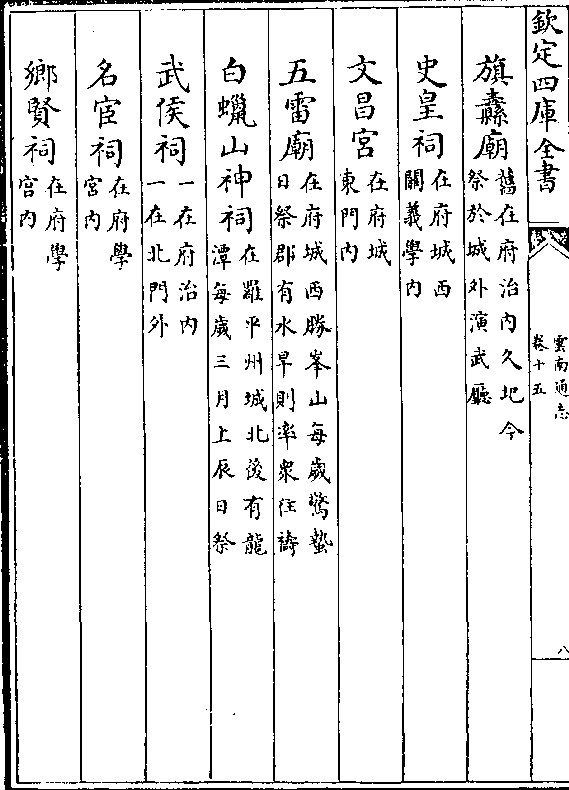 欽定四庫全書
雲南通志
卷十五
八
旗纛廟舊在府治内久圮今
祭於城外演武廳
史皇祠在府城西
關義學内
文昌宮在府城
東門内
五雷廟在府城西勝峯山每歲驚蟄
日祭郡有水旱則率衆往禱
白蠟山神祠在羅平州城北後有龍
潭每歲三月上辰日祭
武侯祠一在府治内
一在北門外
名宦祠在府學
宮内
鄉賢祠在府學
宮内